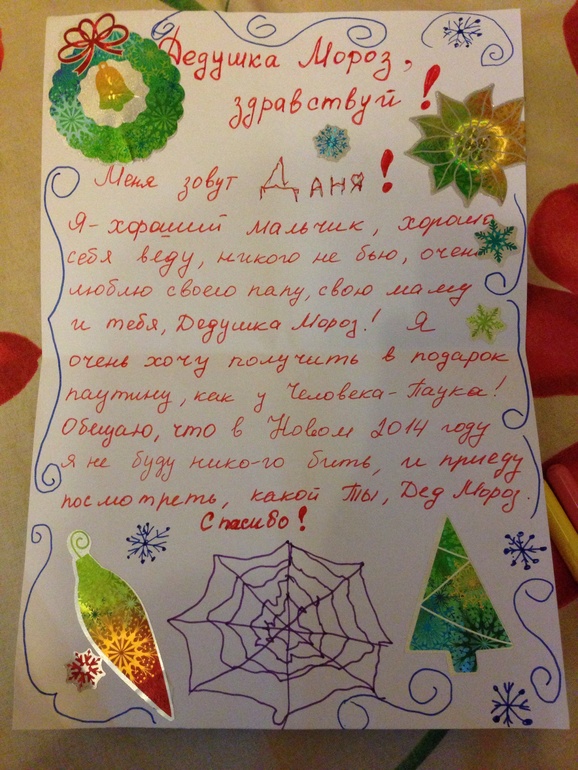 Дедушка Мороз,
здравствуй!
Меня зовут Даня!
Я-хороший мальчик, хорошо
себя веду, никого не бью, очень
люблю своего папу, свою маму
и тебя, Дедушка Мороз! Я
очень хочу получить в подарок
паутину, как у Человека-Паука!
Обещаю, что в Новом 2014 году
я не буду нико-го бить, и приеду
посмотреть, какой Ты, Дед Мороз.
Спасибо!